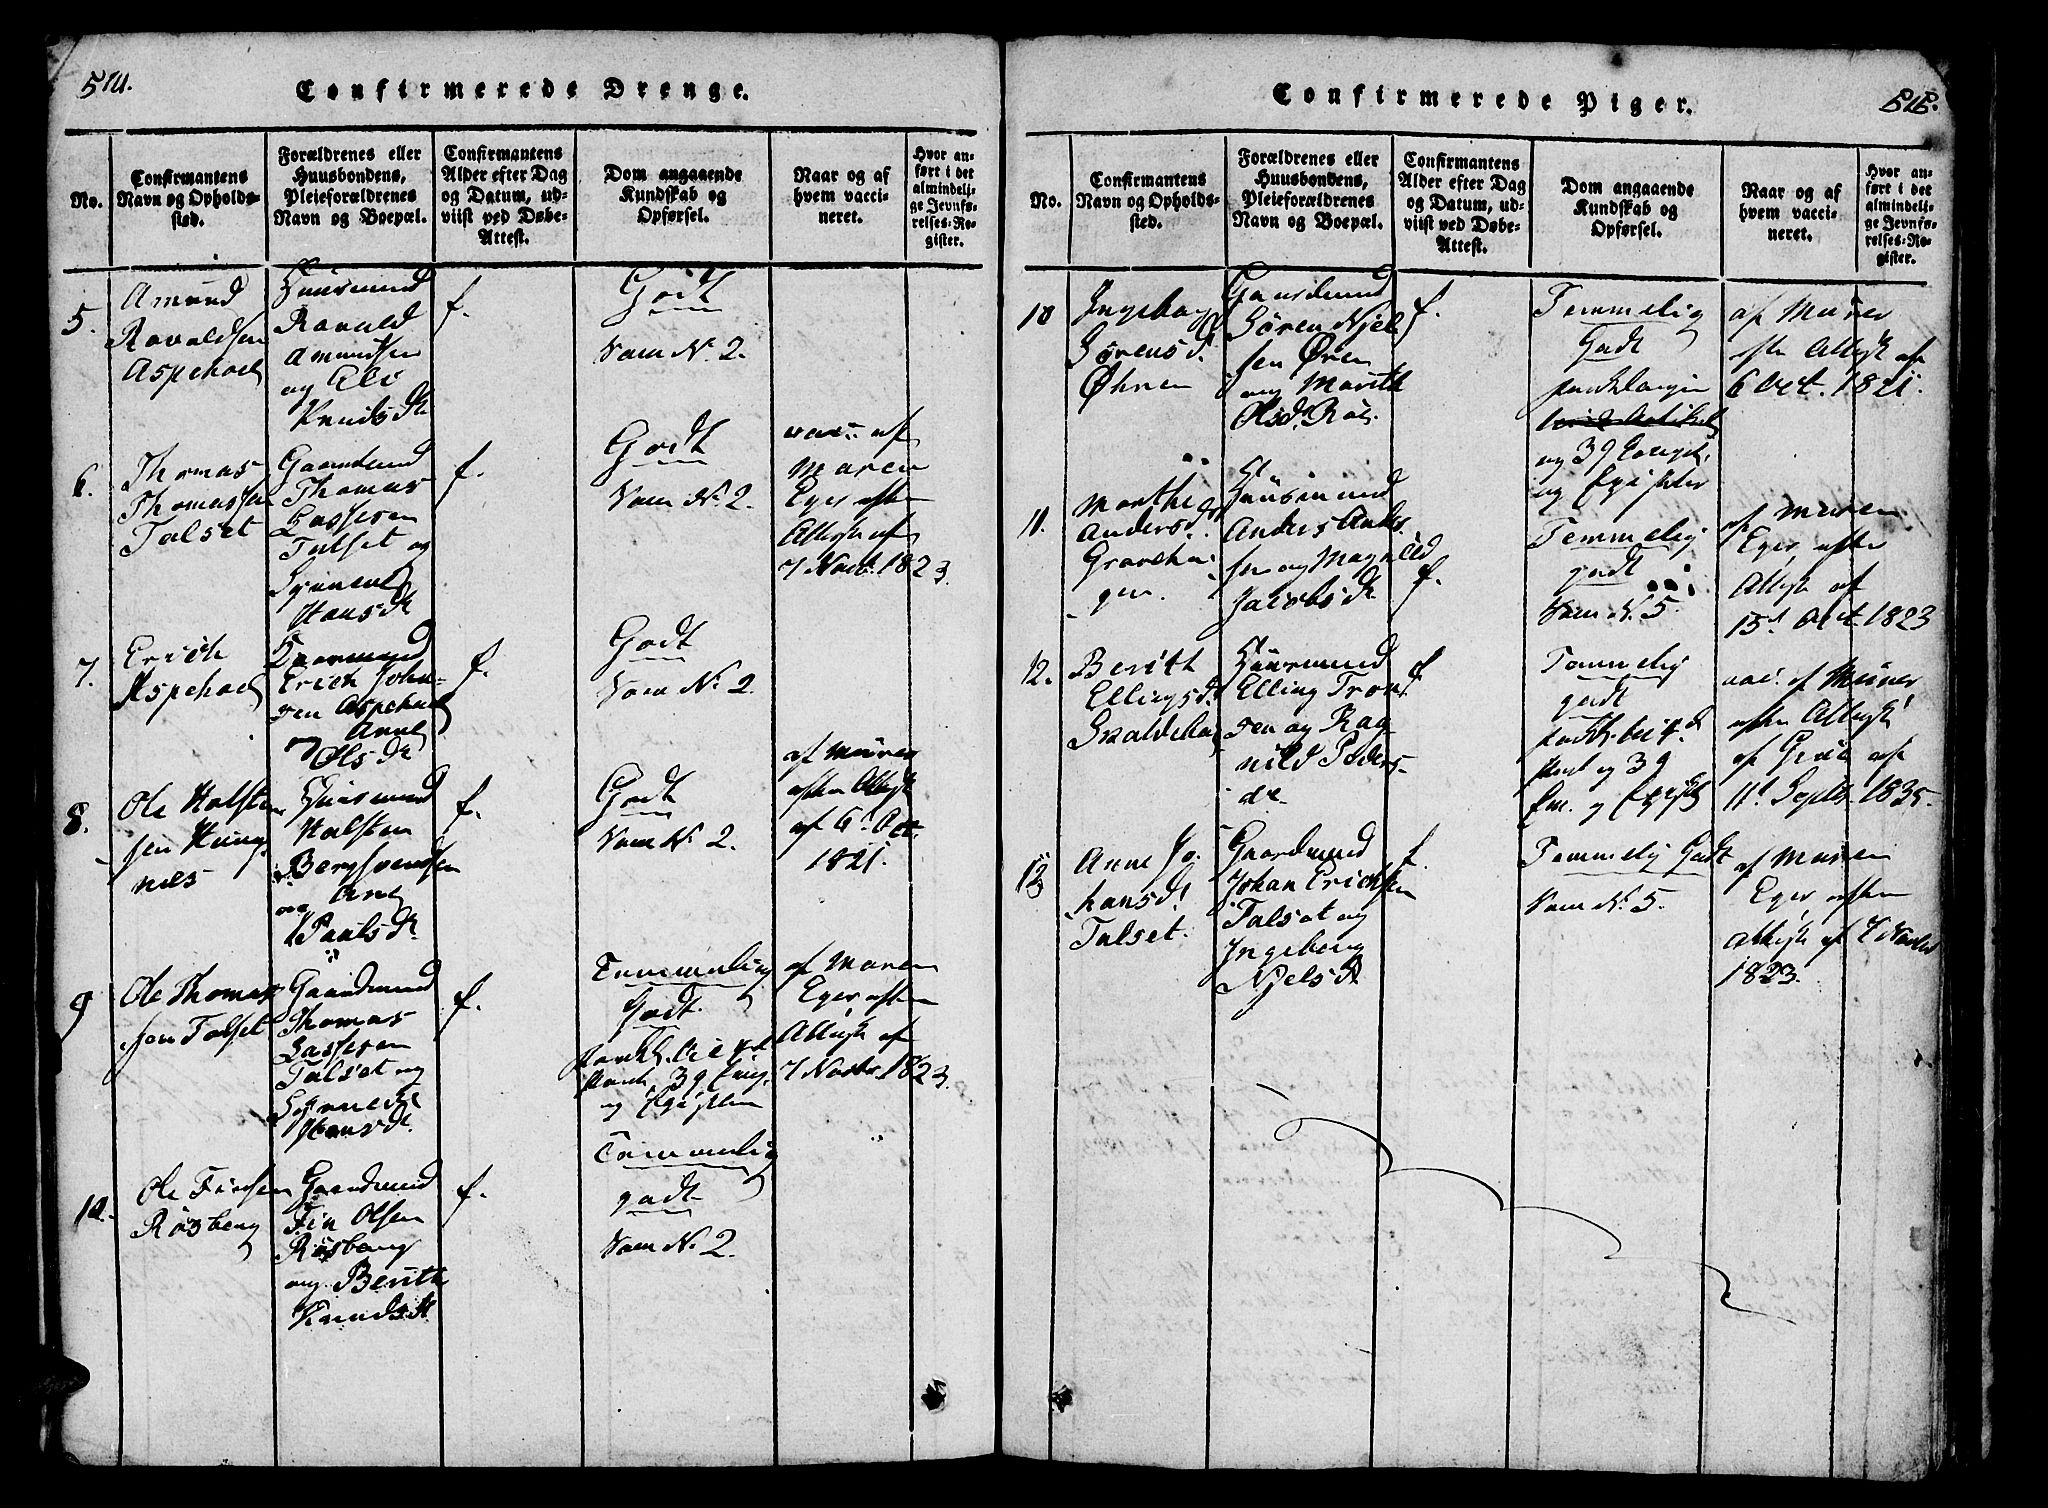 514.
Confirmerede Drenge.
No.
Confirmantens
Navn og Opholds-
sted.
Forældrenes eller
Huusbondens,
Pleieforældrenes
Navn og Boepæl.
Confirmantens
Alder efter Dag
og Datum, ud-
viist ved Døbe-
Attest.
Dom angaaende
Kundskab og
Opførsel.
Naar og af
hvem vacci-
neret.
Hvor an-
ført i det
almindeli-
ge Jevnfø-
relses-Re-
gister.
5.
Amund
Ravaldsen
Aspehoel
Huusmand
Ravald
Amundsen
og Eli
Knudsdr
f.
Godt
Som No. 2.
6.
Thomas
Thomassen
Talset
Gaardmand
Thomas
Lassesen
Talset og
Hansdr
f.
Godt
Som No. 2.
vac. af
Maren
Eger efter
Attest af
7 Novb. 1823.
7.
Erich
Aspehoel
Erich John-
sen Aspehoel
og Anne
Olsdr
f.
Godt
Som No. 2.
8.
Ole Halsten
sen Kung
næs
Huusmand
Halsten
Bergsvendsen
og Ane
Paalsdr
f.
Godt
Som No. 2.
af Murer
efter Attest
af 6. Oct.
1821.
9
Ole Thomas
sen Talset
Gaardmand
Thomas
Lassesen
Talset og
Hansdr.
f.
Temmelig
Godt.
39
og Epistler
af Maren
Eger efter
Attest af
7 Novbr. 1823.
10.
Ole Finsen
Røsberg
Gaardmand
Fin Olsen
Røsberg
og Berith
Knudsdr
f.
Temmelig
godt
Som No. 2.
Confirmerede Piger.
515.
No.
Confirmantens
Navn og Opholds-
sted.
Forældrenes eller
Huusbondens,
Pleieforældrenes
Navn og Boepæl.
Confirmantens
Alder efter Dag
og Datum, ud-
viist ved Døbe-
Attest.
Dom angaaende
Kundskab og
Opførsel.
Naar og af
hvem vacci-
neret.
Hvor an-
ført i det
almindeli-
ge Jevnfø-
relses-Re-
gister.
10
Ingeborg
Sørensd.
Øhren
Gaardmand
Søren Njel
sen Øren
og Marith
Olsd.
f.
Temmelig
Godt
og 39 Evangel.
og Epistler
af Murer
efter Attest af
6 Oct. 1821.
11.
Marthe
Andersdr
Gravha
gen.
Huusmand
Anders Anders
sen og Magnild
Jacobsdr
f.
Temmelig
godt
Som No. 5.
af Maren
Eger efter
Attest af
15d Oct. 1823
12.
Berith
Ellingsd.
Huusmand
Elling Trond
sen og Rag
nild Peders-
dr.
f.
Temmelig
godt
og 39
Ev. og Epistl
vac. af Murer
efter Attest
af
11t Septbr. 1835.
13
Anne Jo
hansd.
Talset.
Gaardmand
Johan Erichsen
Talset og
Ingeborg
Njelsdr
f.
Temmelig Godt
Som No. 5.
af Maren
Eger efter
Attest af 7 Novbr
1823.